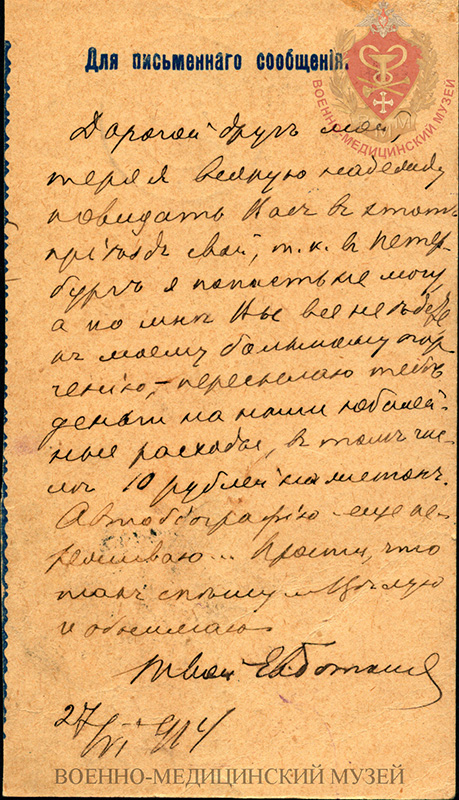 Для письменнаго сообщенія.
ВОЕННО-МЕДИЦИНСКИЙ МУЗЕЙ
Дорогой другъ мой,
теряя всякую надежду
повидать Васъ в этотъ
пріѣздъ свой, т. к. в Петер-
бургъ я попасть не могу
а ко мнѣ Вы все не ѣдете
къ моему большому огор-
ченію, – пересылаю тебѣ
деньги на наши юбилей-
ные расходы, в томъ чис-
лѣ 10 рублей на жетонъ.
Автобіографію еще не
кончиваю... Прости, что
такъ спѣшу. Цѣлую
и обнимаю
твой Евг Боткинъ
27/VI 914
ВОЕННО-МЕДИЦИНСКИЙ МУЗЕЙ